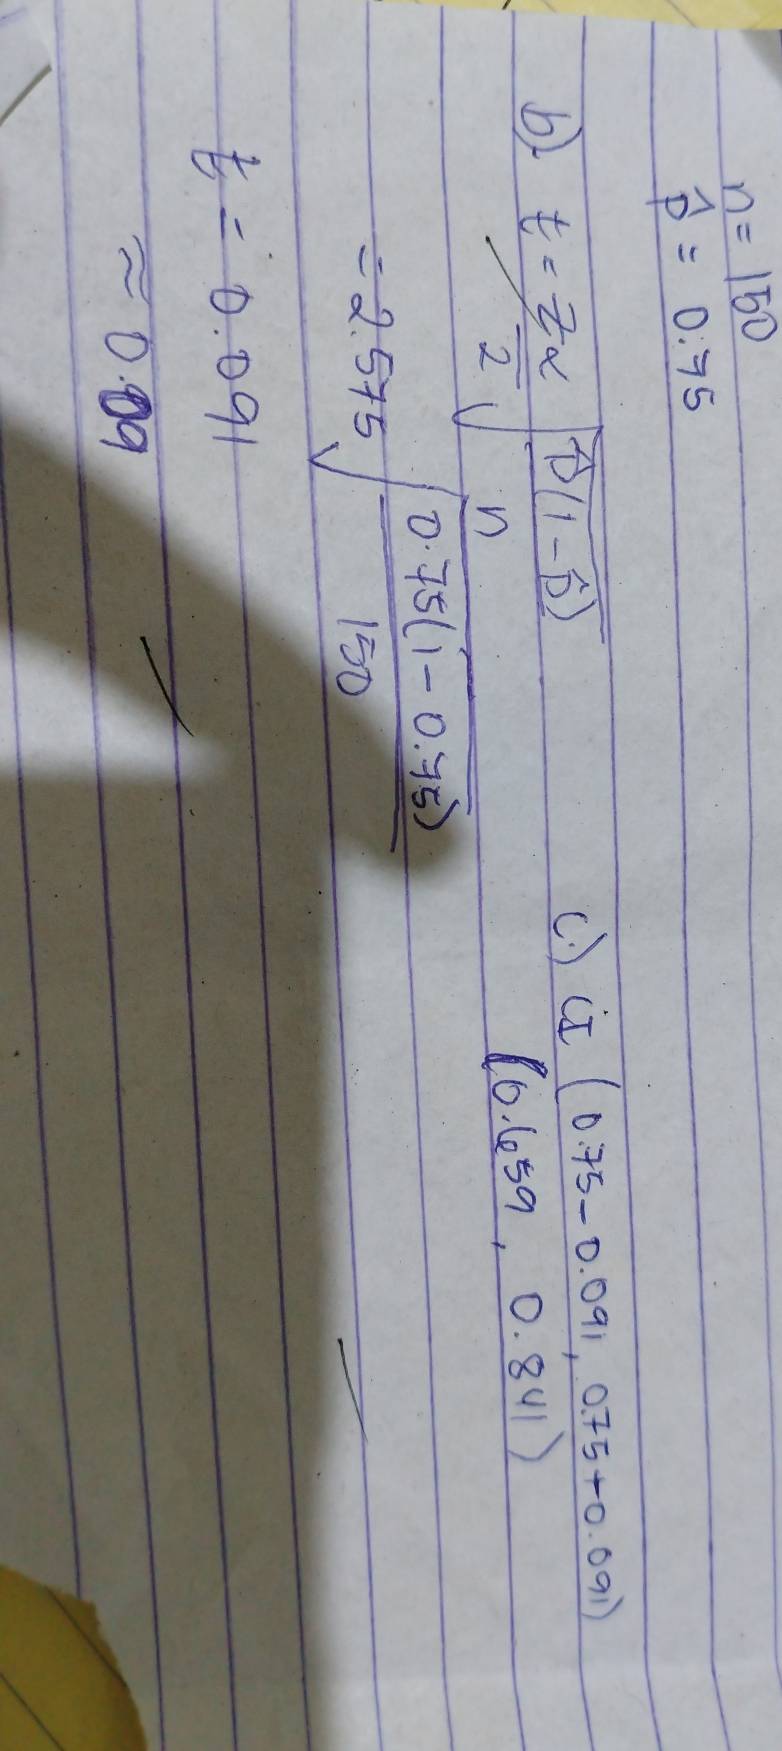 n = 150
p̂ = 0.75
b) t = Zα/2 √(p̂(1 - p̂)/n)
= 2.575 √(0.75(1 - 0.75)/150)
t = 0.091
≈ 0.09
c) CI (0.75 - 0.091, 0.75 + 0.091)
(0.659, 0.841)